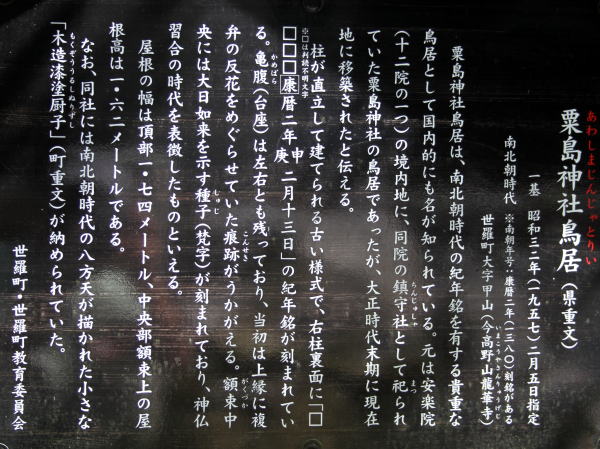 あわしまじんじゃとりい
粟島神社鳥居（県重文）
一基　昭和三二年（一九五七）二月五日指定
南北朝時代　※南朝年号：康暦二年（一三八〇）刻銘がある
世羅町大字甲山（今高野山龍華寺）
いまこうやさんりゅうげじ
粟島神社鳥居は、南北朝時代の紀年銘を有する貴重な
鳥居として国内的にも名が知られている。元は安楽院
（十二院の一つ）の境内地に、同院の鎮守社として祀られ
ちんじゅしゃ　まつ
ていた粟島神社の鳥居であったが、大正時代末期に現在
地に移築されたと伝える。
柱が直立して建てられる古い様式で、右柱裏面に「□
※□は判読不明文字
□□□康暦二年庚申二月十三日」の紀年銘が刻まれてい
る。亀腹（台座）は左右とも残っており、当初は上縁に複
かめばら
弁の反花をめぐらせていた痕跡がうかがえる。額束中
こんせき　がくづか
央には大日如来を示す種子（梵字）が刻まれており、神仏
しゅじ
習合の時代を表徴したものといえる。
屋根の幅は頂部一・七四メートル、中央部額束上の屋
根高は一・六二メートルである。
なお、同社には南北朝時代の八方天が描かれた小さな
もくぞううるしぬりずし
「木造漆塗厨子」（町重文）が納められていた。
世羅町・世羅町教育委員会